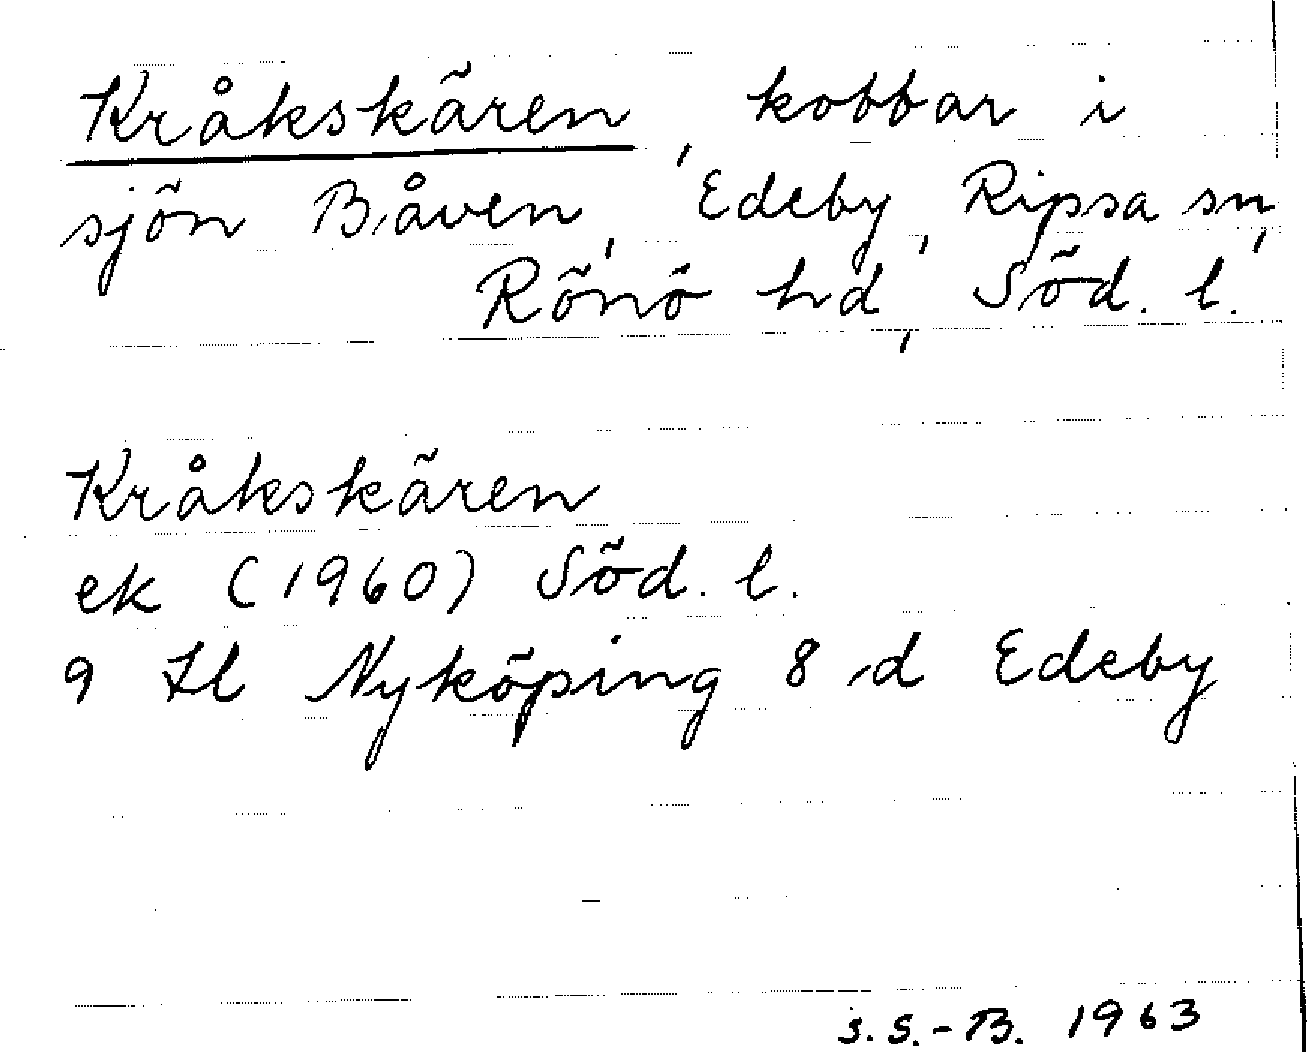 Kråkskären, kobbar i
sjön Båven, Edeby, Ripsa sn,
Rönö hd, Söd. l.
Kråkskären
ek (1960) Söd. l.
9 H Nyköping 8 d Edeby
S. S.-B. 1963